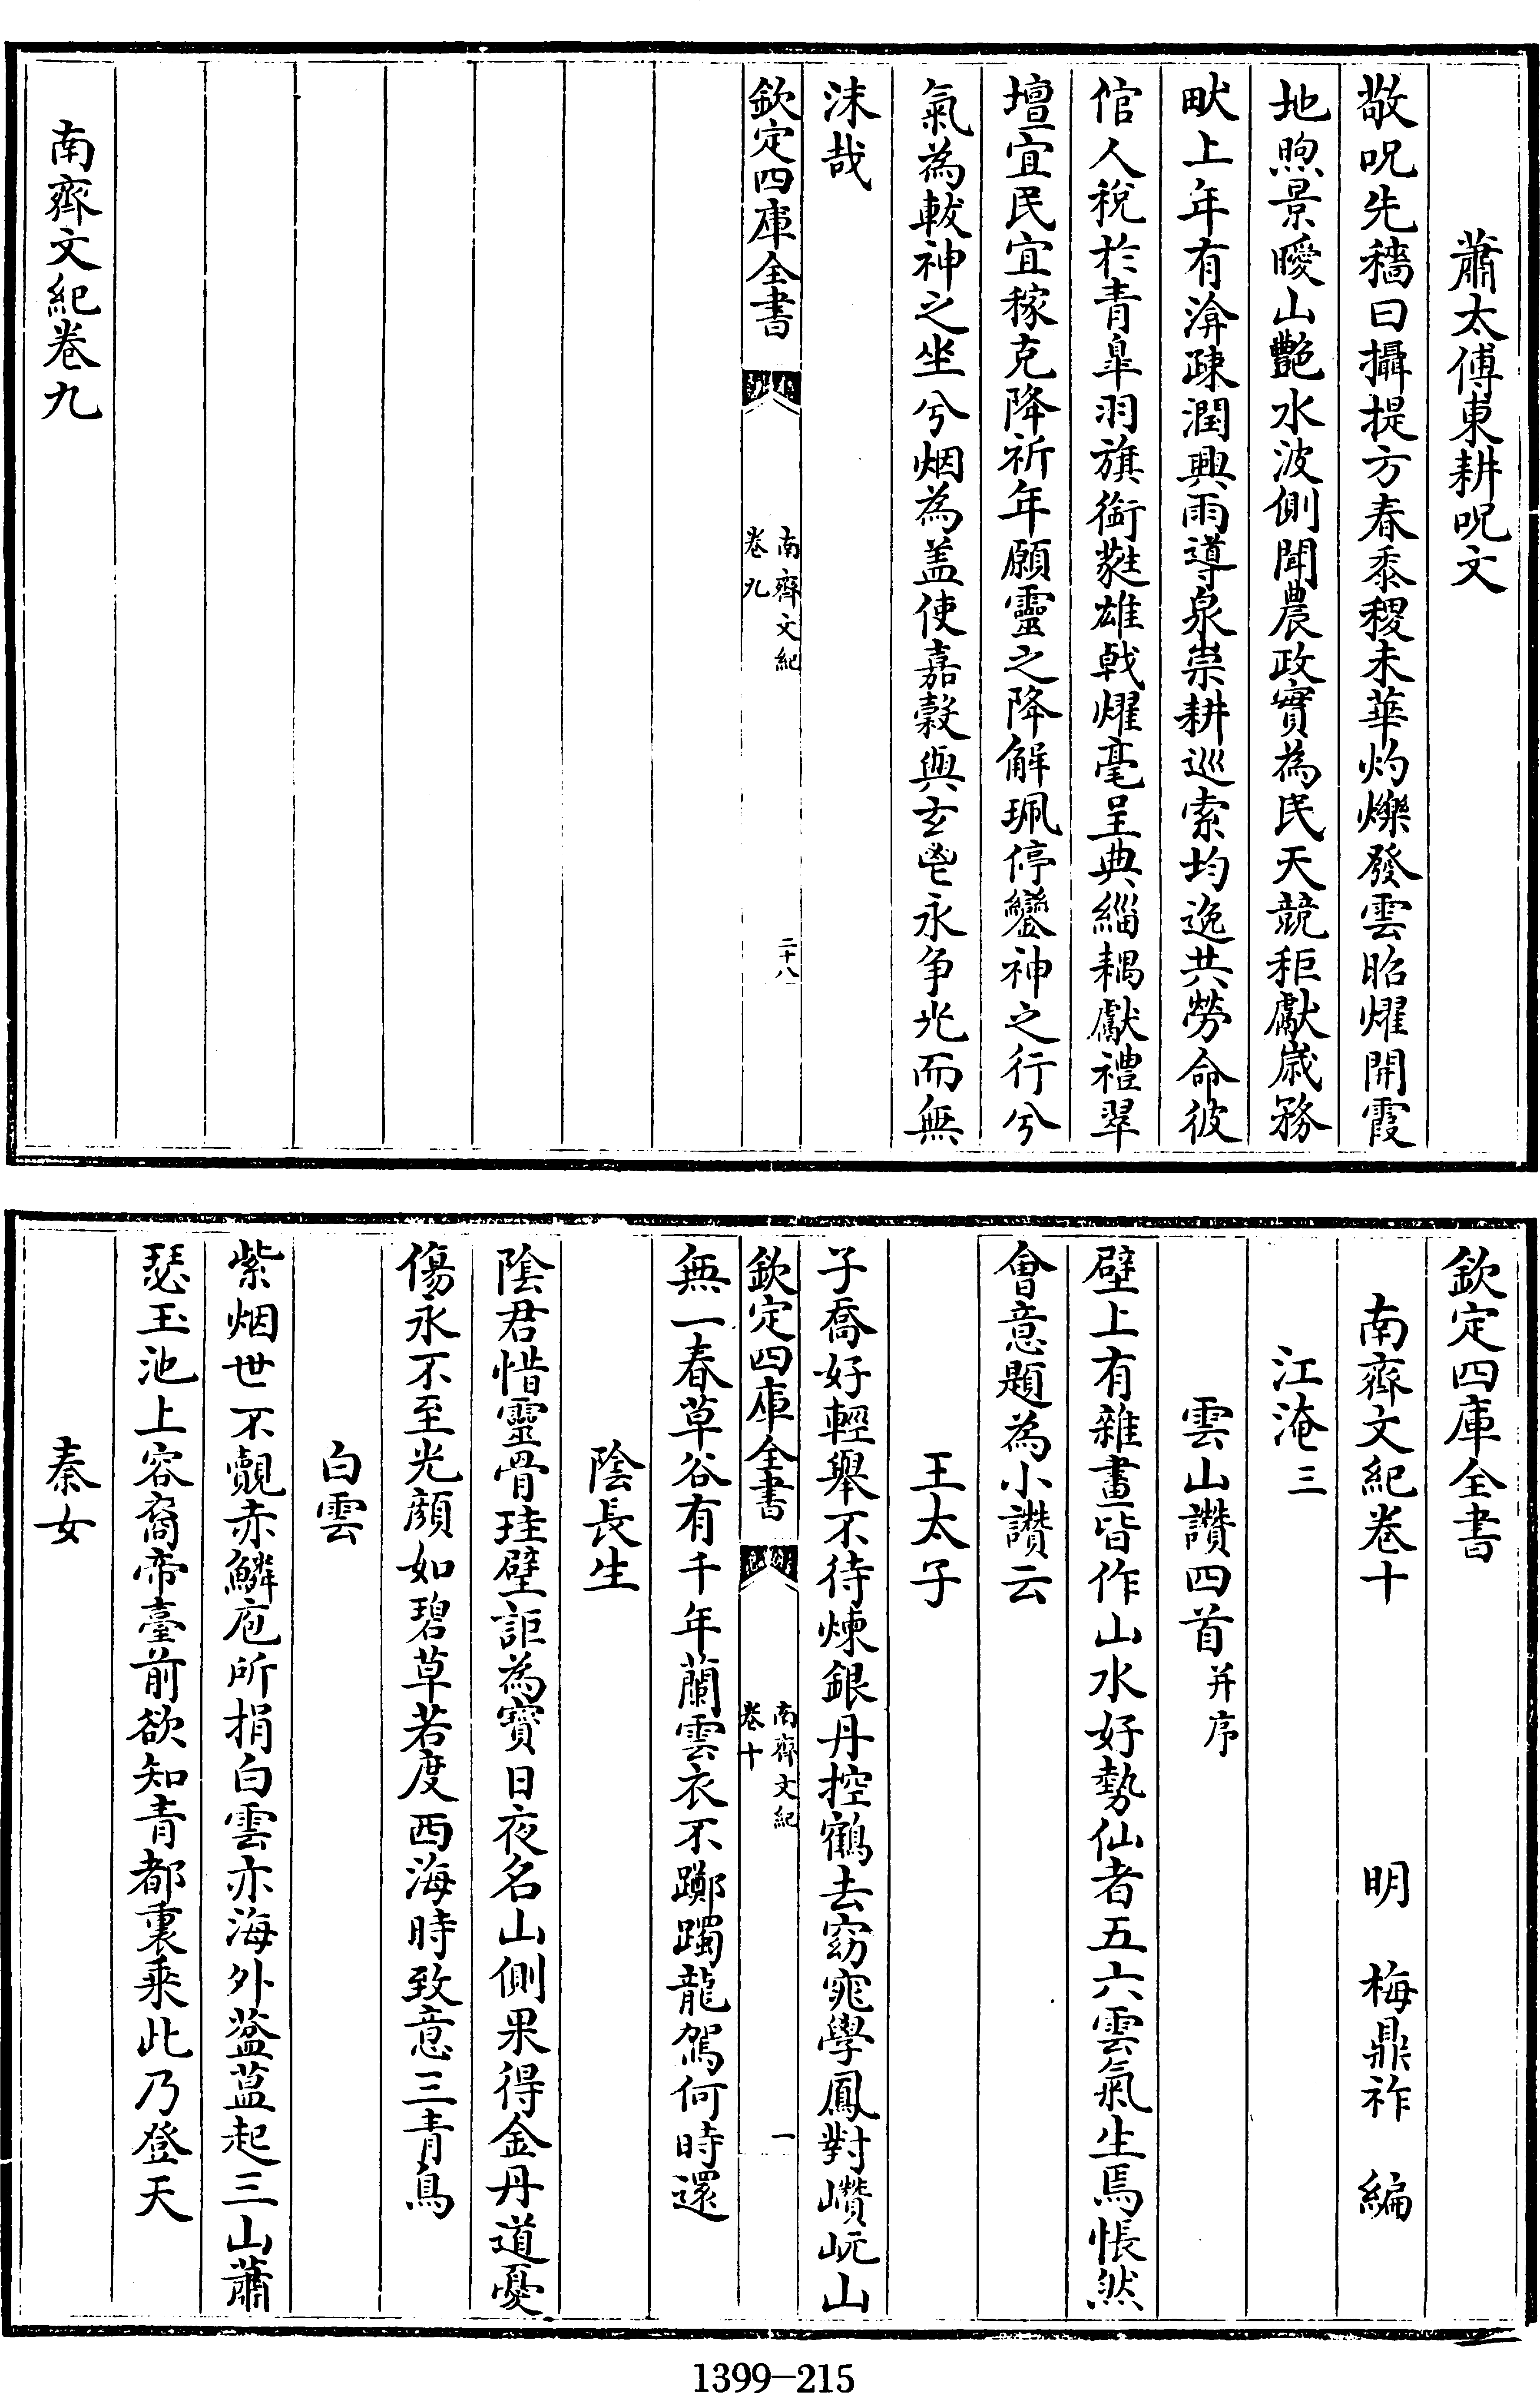 蕭太傅東耕呪文
敬呪先穡曰攝提方春黍稷未華灼爍發雲昭燿開霞
地煦景曖山艷水波側聞農政實為民天競秬獻歳務
畎上年有渰疎潤興雨導泉崇耕巡索均逸共勞命彼
倌人稅於青臯羽旗銜蕤雄戟燿毫呈典緇耦獻禮翠
壇宜民宜稼克降祈年願靈之降解珮停鑾神之行兮
氣為軷神之坐兮烟為盖使嘉穀與玄鬯永争光而無
沬哉
欽定四庫全書
南齊文紀
卷九
二十八
南齊文紀卷九
欽定四庫全書
南齊文紀卷十
明 梅鼎祚 編
江淹三
雲山讚四首并序
壁上有雜畫皆作山水好勢仙者五六雲氣生焉悵然
會意題為小讚云
王太子
子喬好輕舉不待煉銀丹控鶴去窈窕學鳳對巑岏山
欽定四庫全書
南齊文紀
卷十
一
無一春草谷有千年蘭雲衣不躑躅龍駕何時還
陰長生
陰君惜靈骨珪璧詎為寳日夜名山側果得金丹道憂
傷永不至光顔如碧草若度西海時致意三青鳥
白雲
紫烟世不覿赤鱗庖所捐白雲亦海外蓊蒀起三山蕭
瑟玉池上容裔帝臺前欲知青都裏乘此乃登天
秦女
1399-215